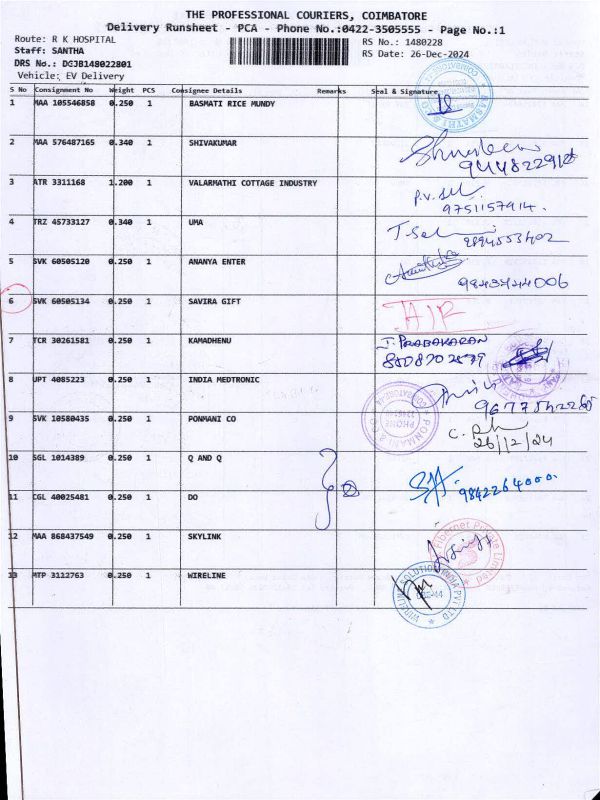 THE PROFESSIONAL COURIERS, COIMBATORE
Delivery Runsheet - PCA - Phone No.:0422-3505555 - Page No.:1
Route: R K HOSPITAL RS No.: 1480228
Staff: SANTHA RS Date: 26-Dec-2024
DRS No.: DGJB148022801
Vehicle: EV Delivery
S No Consignment No Weight PCS Consignee Details Remarks Seal & Signature
1 MAA 105546858 0.250 1 BASMATI RICE MUNDY
2 MAA 576487165 0.340 1 SHIVAKUMAR
3 ATR 3311168 1.200 1 VALARMATHI COTTAGE INDUSTRY
P.V. 9751157914.
4 TRZ 45733127 0.340 1 UMA
5 SVK 60505120 0.250 1 ANANYA ENTER
6 SVK 60505134 0.250 1 SAVIRA GIFT
7 TCR 30261581 0.250 1 KAMADHENU J. PRABAKARAN
8 UPT 4085223 0.250 1 INDIA MEDTRONIC
9 SVK 10580435 0.250 1 PONMANI CO
26/12/24
10 SGL 1014389 0.250 1 Q AND Q
9842264000.
11 CGL 40025481 0.250 1 DO
12 MAA 868437549 0.250 1 SKYLINK
13 MTP 3112763 0.250 1 WIRELINE